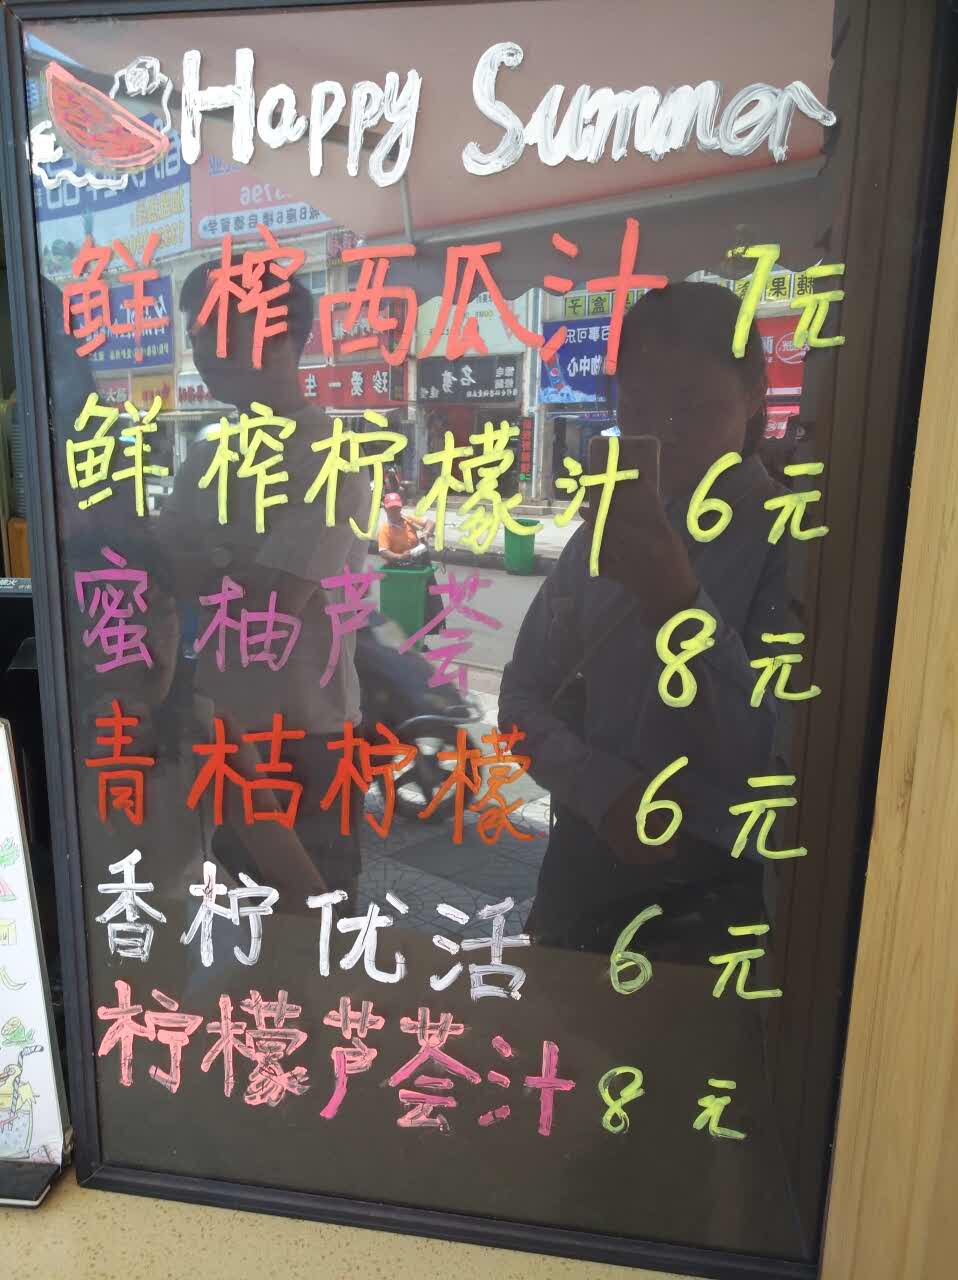 Happy Summer
鲜榨西瓜汁 7元
鲜榨柠檬汁 6元
蜜柚芦荟 8元
青桔柠檬 6元
香柠优活 6元
柠檬芦荟汁 8元